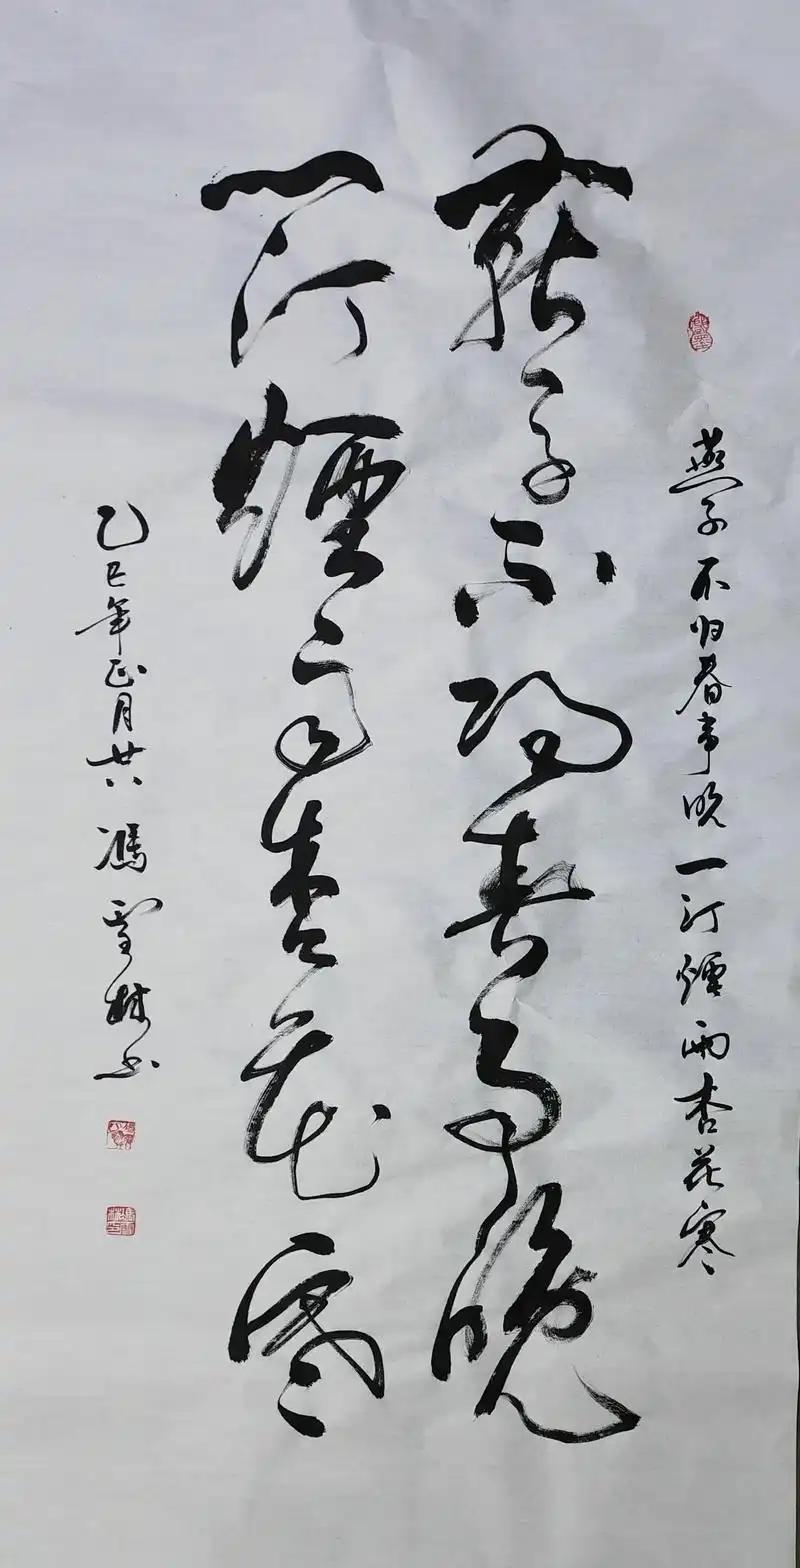 燕子不归春事晚一汀煙雨杏花寒
燕子不歸春事晚
一汀煙雨杏花寒
乙巳年正月廿八馮雪林书